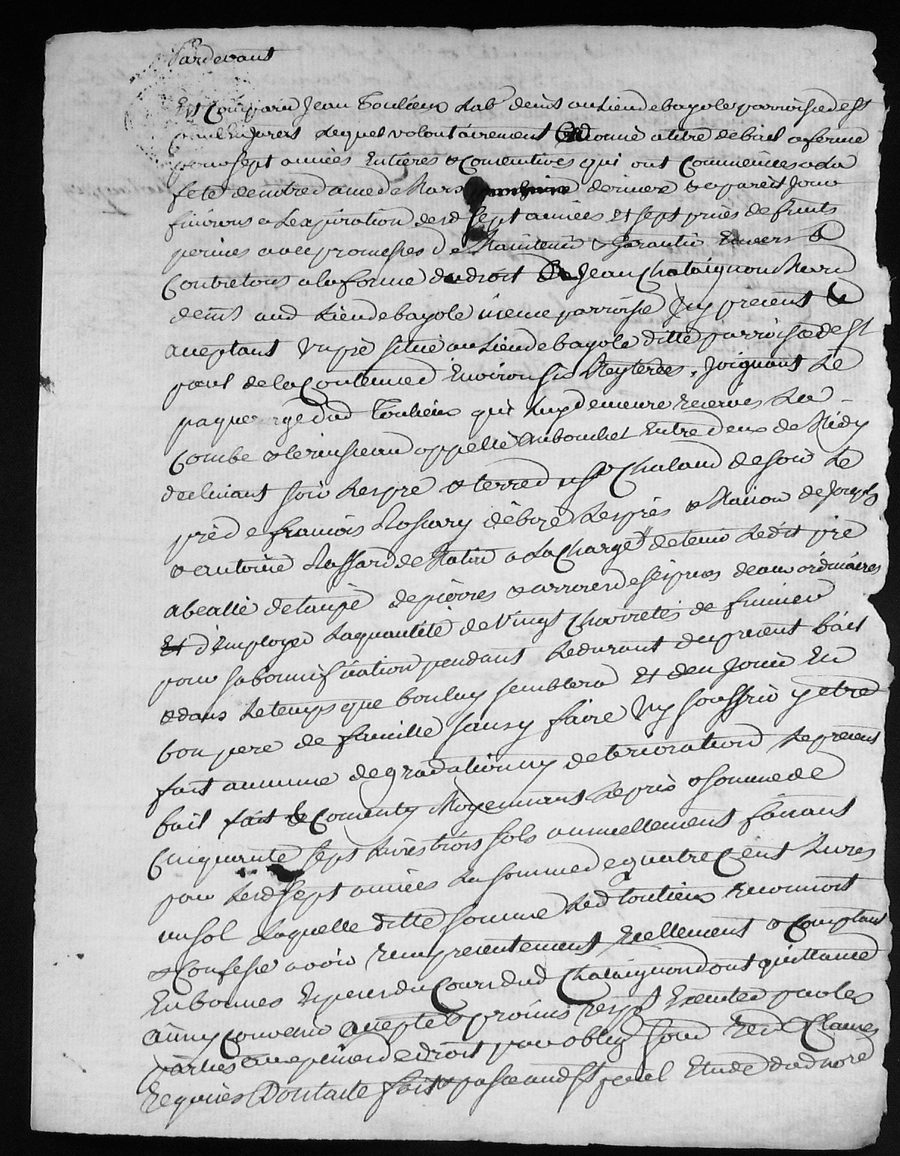 Pardevant
Est Comparu Jean Toulieux Lab.r demt au Lieu de bayole parroisse de St
paul En Jarest Lequel volontairement a donné a titre de bail a ferme
pour sept années Entieres & Consecutives qui ont Commencées a La
fête de notre dame de Mars derniere & a pareil Jour
finirons a Lexpiration desd sept années Et sept prises de fruits
perçues avec promesses de Maintenir & Garantir Envers &
Contre tous a la forme du droit a Jean Chataignon
demt aud Lieu de bayole meme parroisse Icy present &
aceptant Un pré situé au Lieu de bayole ditte parroisse de St
paul de la Contenue d Environ six Meyterées, Joignant Le
paquerage dud Toulieux qui Luy demeure reservé La
Combe & le ruisseau appellé du bouchet Entre deux de Midy
declinant soir Les pré & terre du Sr Chaland de soir Le
pré de francois Rossary de bize Les prés & Maison de Joseph
& antoine de Matin a La Charge de tenir Ledit pré
abealé detaupé depierré & arroser de ses prises deau ordinaires
d'Employer La quantité de Vingt Charretées de fumier
pour sa bonnification pendant Le durant du present bail
& dans Le temps que bon luy semblera Et d'en Jouir En
bon pere de famille sans y faire Ny souffrir y etre
fait aucune degradation ny deterioration Le present
bail fait & Consenty Moyennant Le prix & somme de
Cinquante sept Livres trois sols annuellement faisant
pour Lesd sept années La somme de quatre Cent Livres
un sol Laquelle ditte somme Led Toulieux reconnoit
& Confesse avoir reçu presentement reellement & Comptant
En bonnes Especes du Cours dud Chataignon dont quittance
ainsy Convenu accepté & promis respt Executer par les
parties aux peines de droit par oblig soum ren & Clauses
requises Dont acte fait & passé aud St paul Etude dud nore